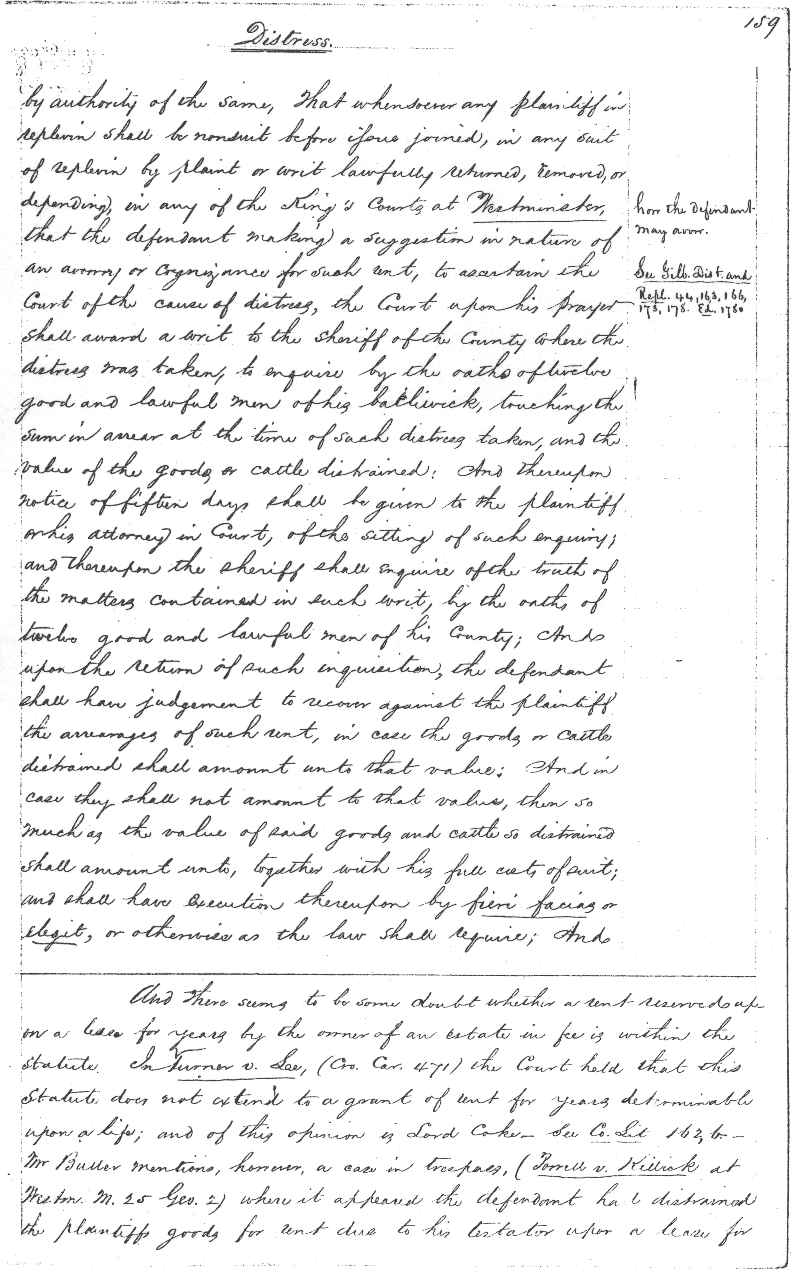 159
Distress.
by authority of the same, That whensoever any plaintiff in
replevin shall be nonsuit before issue joined, in any suit
of replevin by plaint or writ lawfully returned, removed, or
depending, in any of the King's Courts at Westminster,
that the defendant making a suggestion in nature of
an avowry or cognizance for such rent, to ascertain the
Court of the cause of distress, the Court upon his prayer
shall award a writ to the sheriff of the County where the
distress was taken, to enquire by the oaths of twelve
good and lawful men of his bailiwick, touching the
sum in arrear at the time of such distress taken, and the
value of the goods or cattle distrained: And thereupon
notice of fifteen days shall be given to the plaintiff
or his attorney in Court, of the sitting of such enquiry;
and thereupon the sheriff shall enquire of the truth of
the matters contained in such writ, by the oaths of
twelve good and lawful men of his County; And
upon the return of such inquisition, the defendant
shall have judgement to recover against the plaintiff
the arrearages of such rent, in case the goods or cattle
distrained shall amount unto that value: And in
case they shall not amount to that value, then so
much as the value of said goods and cattle so distrained
shall amount unto, together with his full costs of suit;
and shall have execution thereupon by fieri facias or
elegit, or otherwise as the law shall require; And
how the defendant
may avow.
See Gilb. Dist. and
Repl. 44, 163, 166,
173, 178. Ed. 1780
And there seems to be some doubt whether a rent reserved up
on a lease for years by the owner of an estate in fee is within the
statute. In Turner v. Lee, (Cro. Car. 471) the Court held that this
Statute does not extend to a grant of rent for years determinable
upon a life; and of this opinion is Lord Coke – See Co. Lit 162, b –
Mr Buller mentions, however, a case in trespass, (Powell v. Killick at
Westm. M. 25 Geo. 2) where it appeared the defendant had distrained
the plaintiffs goods for rent due to his testator upon a lease for